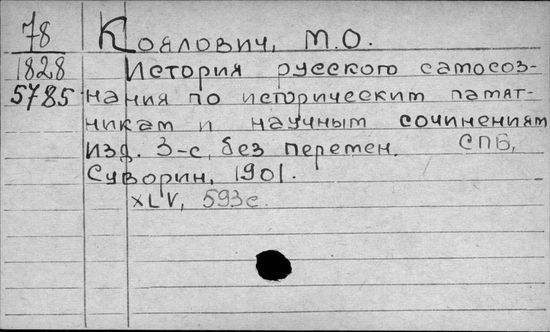 78 Коялович, М.О.
1828 История русского самосоз-
5785 нания по историческим памят-
никам и научным сочинениям
Изд. 3-е, без перемен. СПБ,
Суворин, 1901.
XLV, 593с.